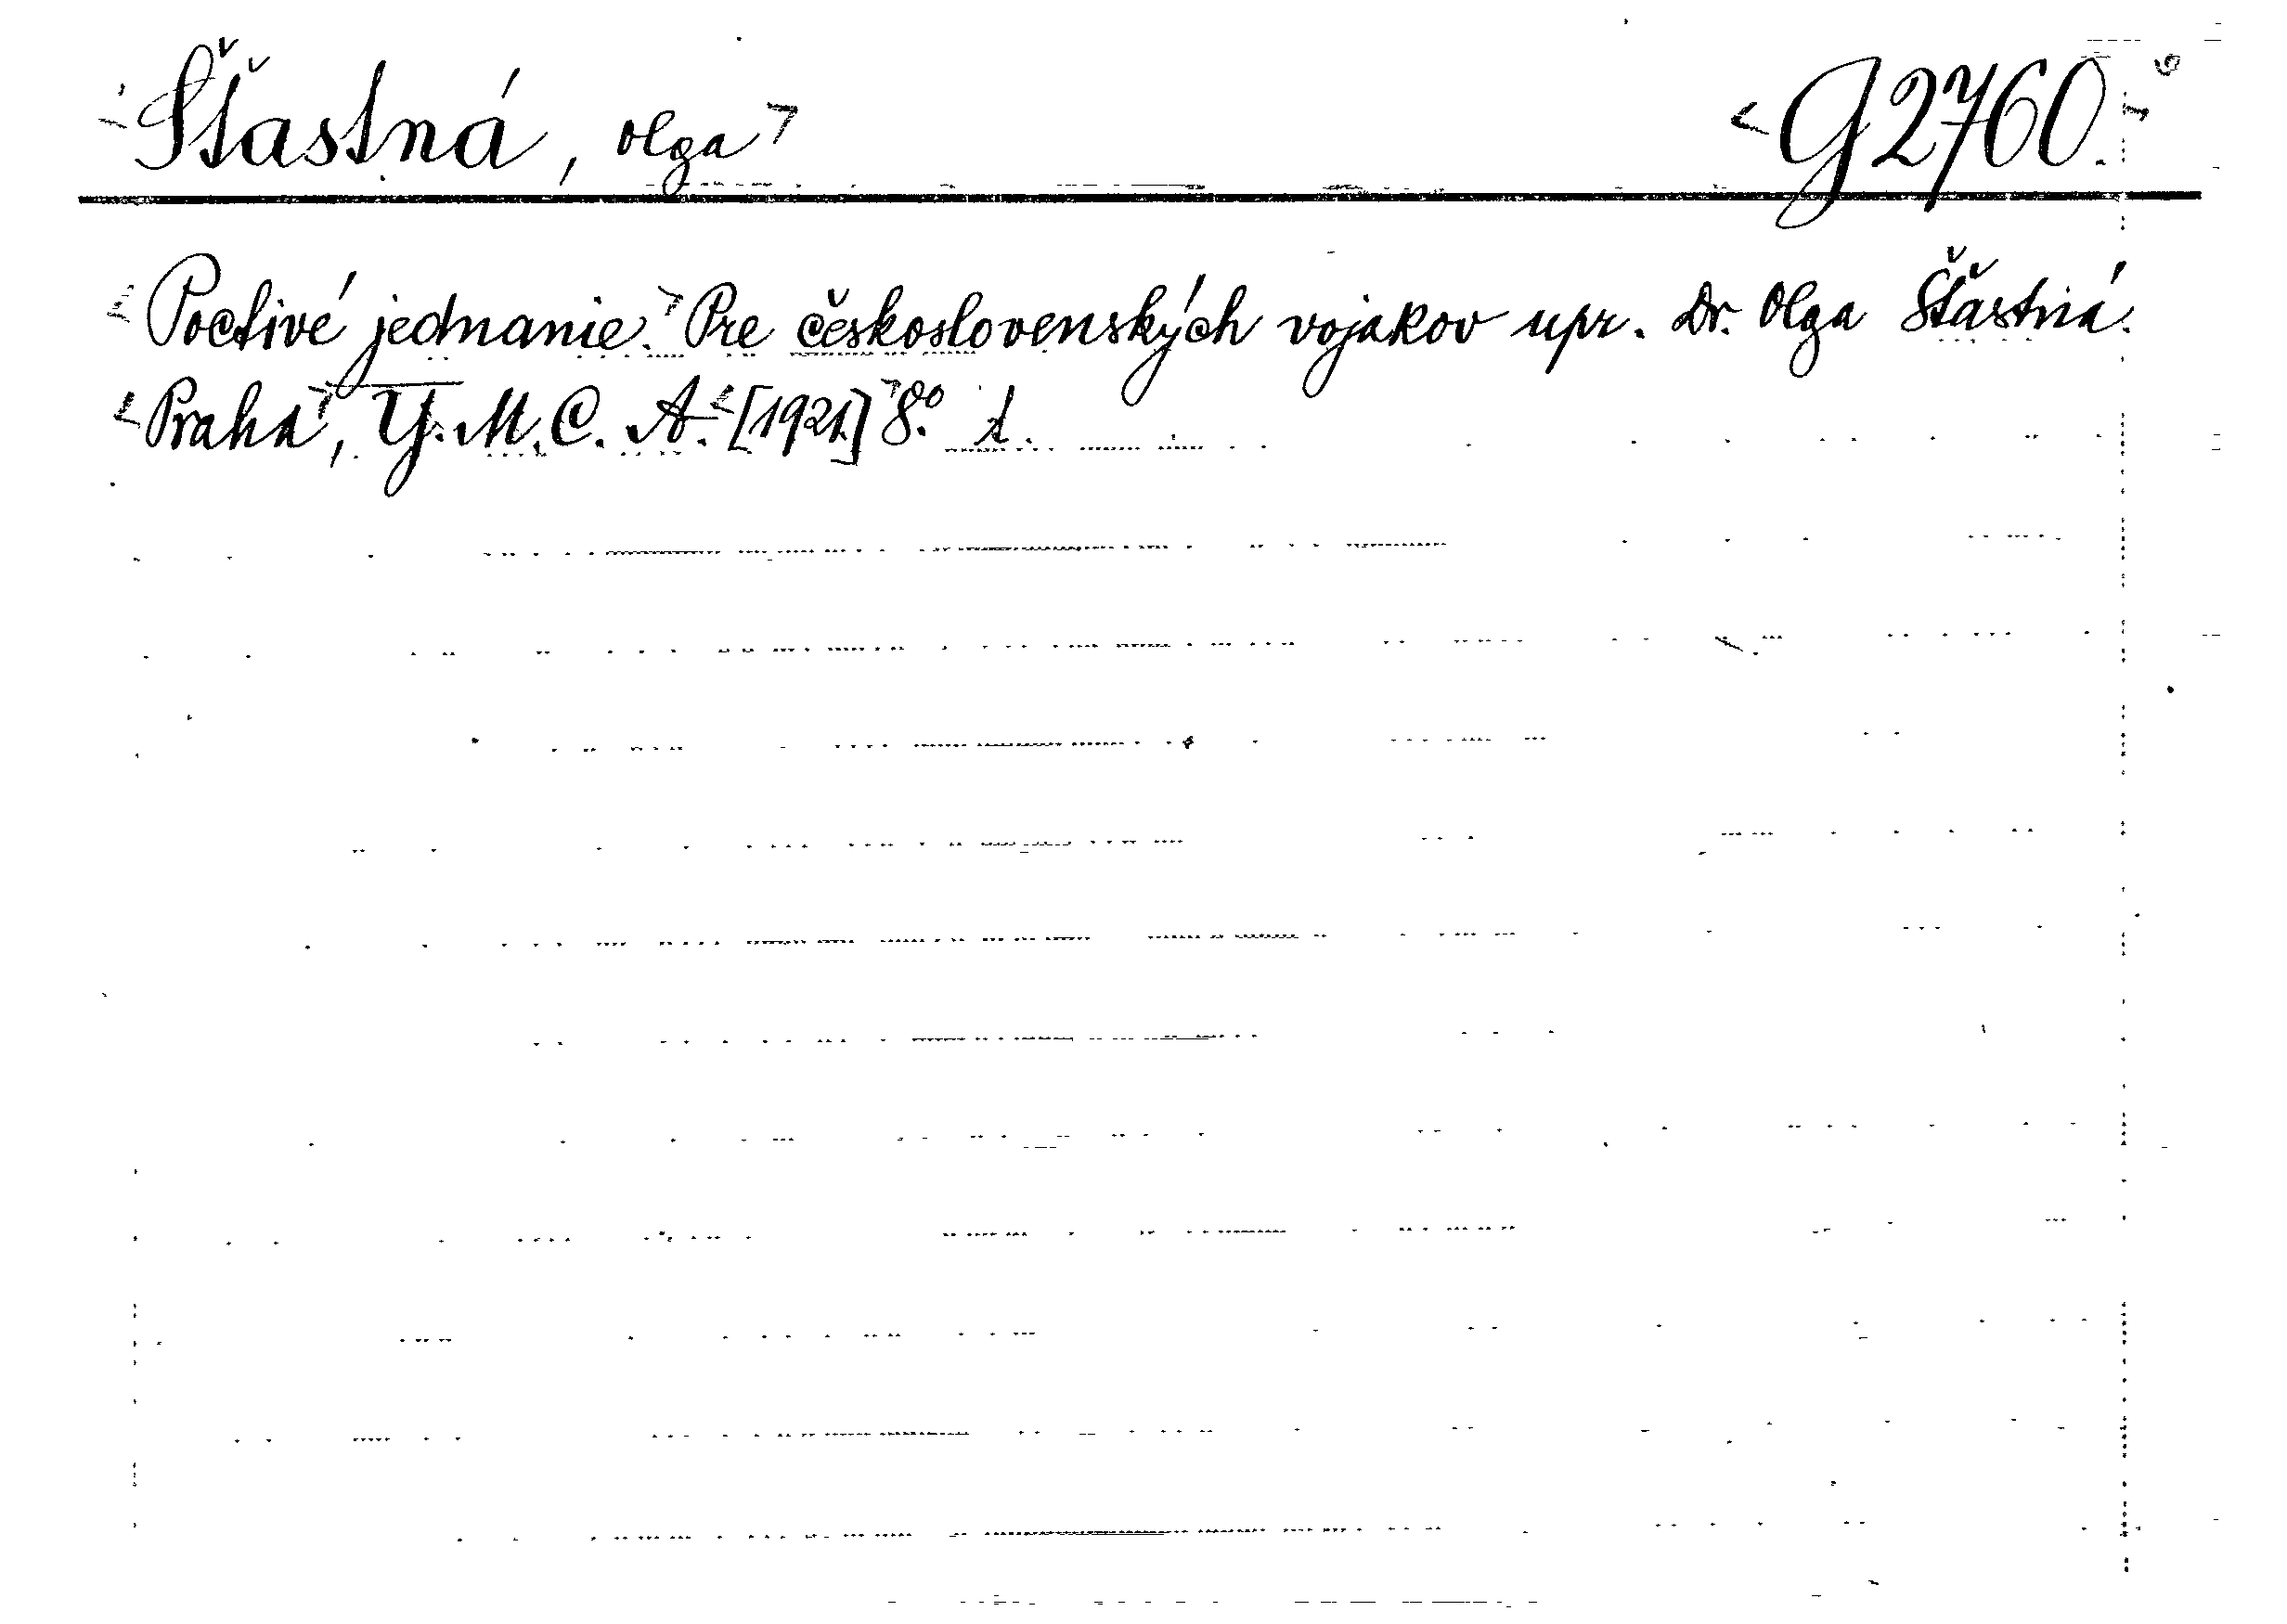 Šťastná, Olga G 2760.
Poctivé jednanie. Pre československých vojakov upr. Dr. Olga Šťastná.
Praha, Y. M. C. A. [1921.] 8.° 1.